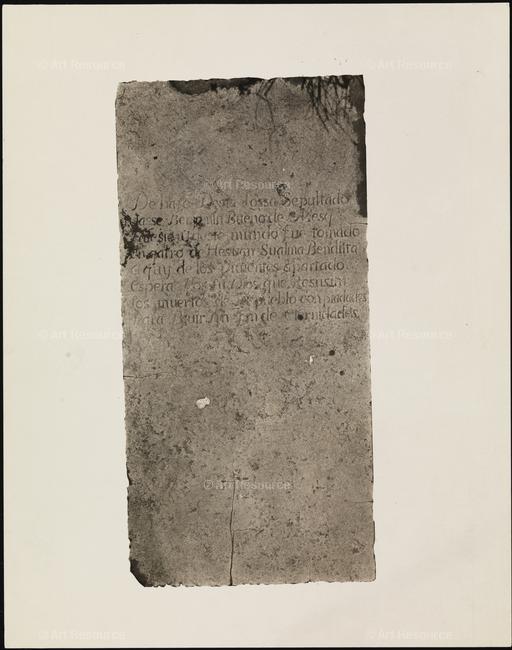 © Art Resource © Art Resource
© Art Resource
De Baxo Desta Lossa Sepultado
Yasse Bueno de Mesq
deste mundo fue tomado
En quatro de Hesvan Su alma Benditta
Aquy de los Vivientes Apartado
Espera Por tu Dios que Resusita
los muertos de Su pueblo con piadades
Para Bivir Sin Fin de Eternidades.
© Art Resource © Art Resource
© Art Resource
© Art Resource © Art Resource